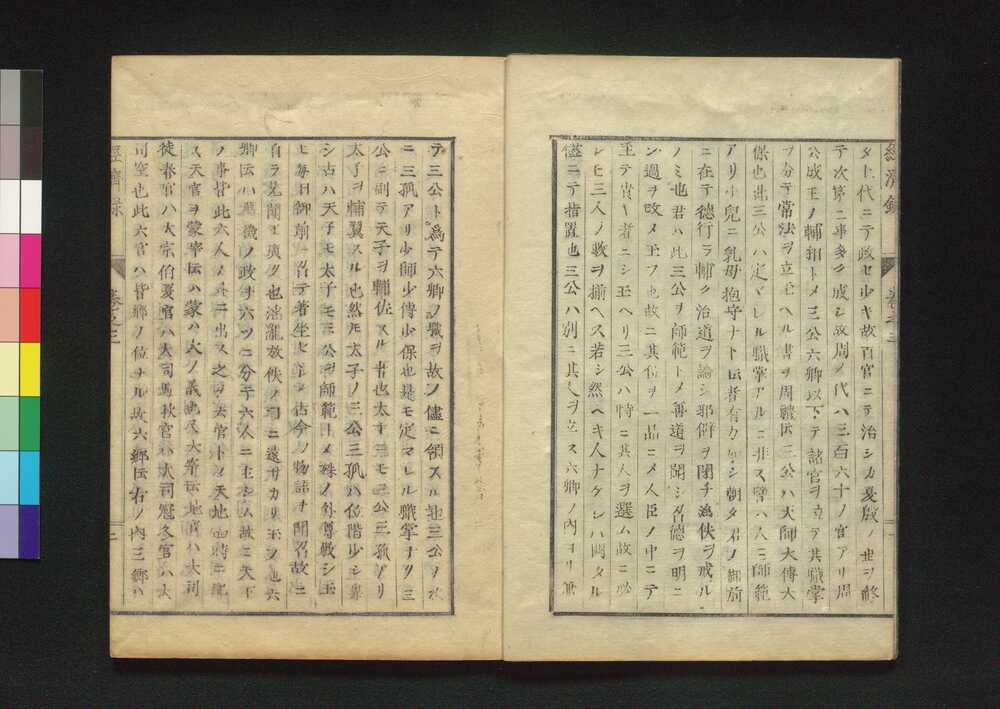 タ上代ニテ政セ少キ故百官ニテ治シカ夏殷ノ世ヲ経
テ次第ニ事多ク成シ故周ノ代ハ三百六十ノ官アリ周
公成王ノ輔相トメ三公六卿以下テ諸官ヲ立テ其職掌
ヲ分テ常法ヲ立玉ヘル書ヲ周禮ト云三公ハ大師大傅大
保也此三公ハ定マレル職掌アルニ非ス譬ハ人ニ師範
アリ小兒ニ乳母抱守ナト云者有カ如シ朝夕君ノ御前
ニ在テ德行ヲ輔ケ治道ヲ論シ邪僻ヲ閉チ逸佚ヲ戒ル
ノミ也君ハ此三公ヲ師範トメ善道ヲ聞シ名德ヲ明ニ
シ過ヲ改メ玉フ也故ニ其位ヲ一品ニメ人臣ノ中ニテ
至テ貴キ者ニシ玉ヘリ三公ハ特ニ其人ヲ選ム故ニ必
シモ三人ノ数ヲ揃ヘス若シ然ヘキ人ナケレハ闕タル
儘ニテ措置也三公ハ別ニ其人ヲ立ス六卿ノ内ヨリ兼
經濟錄
卷之三
テ三公ト為テ六卿ノ職ヲ故ノ儘ニ領スル
ニ三孤アリ少師少傅少保也是モ定マレル職掌ナリ三
公ニ副テ天子ヲ輔佐スル者也太子ニモ三公三孤アリ
太子ヲ輔翼スル也然モ太子ノ三公三孤ハ位階少シ卑
シ古ハ天子モ太子モ三公ヲ師範トメ殊ノ外尊敬シ玉
ヒ毎日御前ニ召テ著坐セシメ古今ノ物語ヲ聞召故ニ
自ラ見聞モ廣ク也淫亂放佚ノ事ニ遠サカリ玉フ也六
卿ト云ハ政ヲ六ツニ分テ六人ニ主シム故ニ天下
ノ事皆此六人ヨリ出ス之ヲ六官ト云天地四時ニ配
ス天官ヲ冢宰ト云ハ大ノ義也又大宰ト云地官ハ大司
徒春官ハ大宗伯夏官ハ大司馬秋官ハ大司寇冬官ハ大
司空也此六官ハ皆卿ノ位ナル故六卿ト云右ノ内三卿ハ
經濟錄
卷之三
二